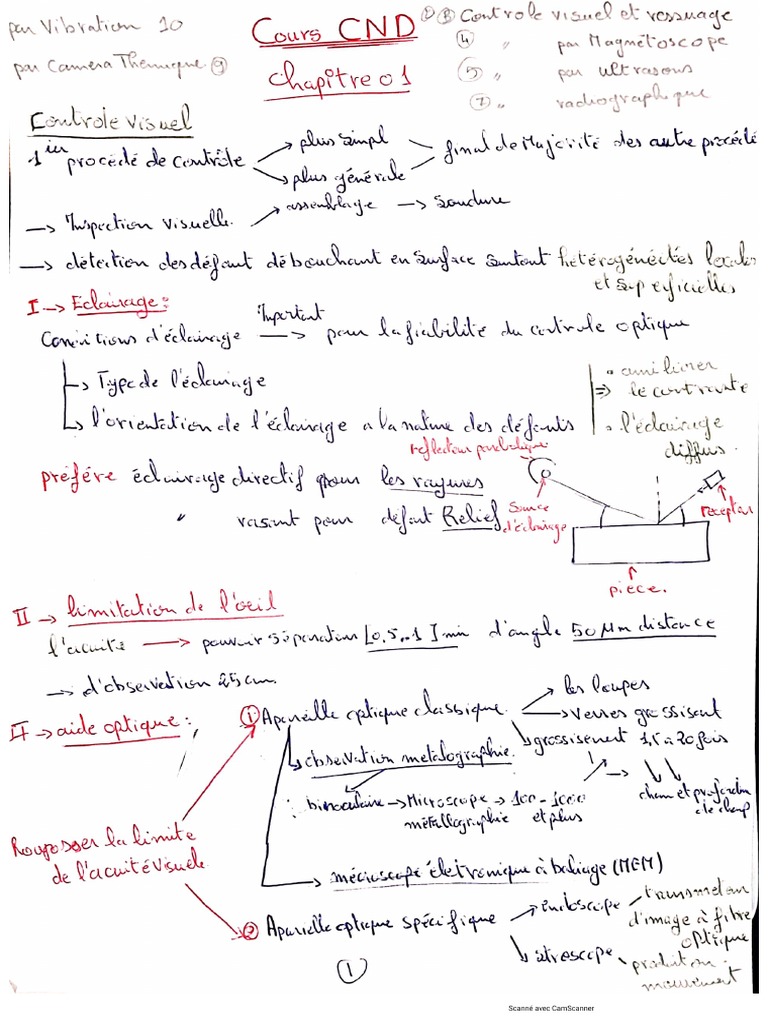 par Vibration 10
par Camera Thermique ⑨
Cours CND
chapitre 01
① ② Controle visuel et ressuage
④ " par Magnétoscope
⑤ " par ultrasons
⑦ " radiographique
Controle visuel
1ier procédé de contrôle → plus simpl
→ plus générale
final de Majorité des autre procédé
→ Inspection visuelle. → assemblage → Soudure
→ détection des défaut débouchant en surface surtout hétérogénéités locales
et superficielles
I → Eclairage :
Conditions d'éclairage Important → pour la fiabilité du controle optique
↳ Type de l'éclairage
↳ l'orientation de l'éclairage a la nature des défauts
⇒ améliorer
le contraste
l'éclairage
diffus.
préfére éclairage directif pour les rayures
" rasant pour défaut Relief
reflecteur parabolique
Source
d'éclairage
recepteur
pièce.
II → limitation de l'oeil
l'acuité → pouvoir séparation [0,5..1] min d'angle 50 µm distance
→ d'observation 25 cm.
II → aide optique :
① Apareille optique classique.
→ les loupes
→ Verres grossisant
grossisement 1,5 a 20 fois
→ cham et profondeur
de champ
↳ observation metalographie.
: binoculaire → Microscope → 100 - 1000
métallographie et plus
→ méciroscope électronique à baliage (MEM)
Rouposser la limite
de l'acuité visuele
② Apareille optique spécifique → endoscope
transmetion
d'image à fibre
optique
strescope
production
mouvement
1
Scanné avec CamScanner